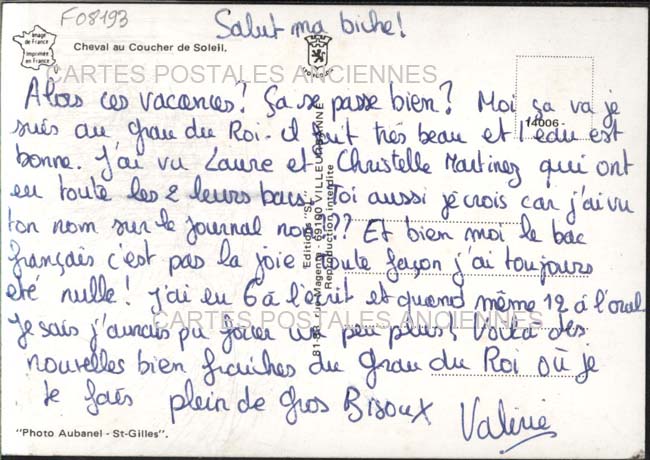 F08193
Salut ma biche!
Image de France
Imprimée en France
Cheval au Coucher de Soleil.
CARTES POSTALES ANCIENNES
Alors ces vacances? Ça se passe bien? Moi ça va je
suis au Grau du Roi. il fait très beau et l'eau est
bonne. J'ai vu Laure et Christelle Martinez qui ont
eu toute les 2 leurs bacs. Toi aussi je crois car j'ai vu
ton nom sur le journal non??? Et bien moi le bac
français c'est pas la joie toute façon j'ai toujours
été nulle! J'ai eu 6 à l'écrit et quand même 12 à l'oral.
Je sais j'aurais pu faire un peu plus! Voilà des
nouvelles bien fraîches du Grau du Roi où je
te fais plein de gros Bisoux
Valérie
14006-
Editions "SL"
81-83, rue Magenta - 69100 VILLEURBANNE
Reproduction interdite
CARTES POSTALES ANCIENNES
"Photo Aubanel - St-Gilles".